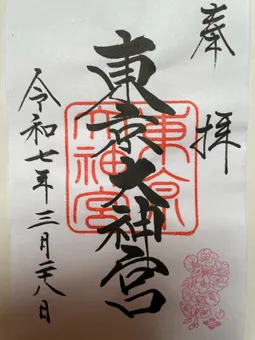 奉拝
東京大神宮
東京大神宮
令和七年三月二八日